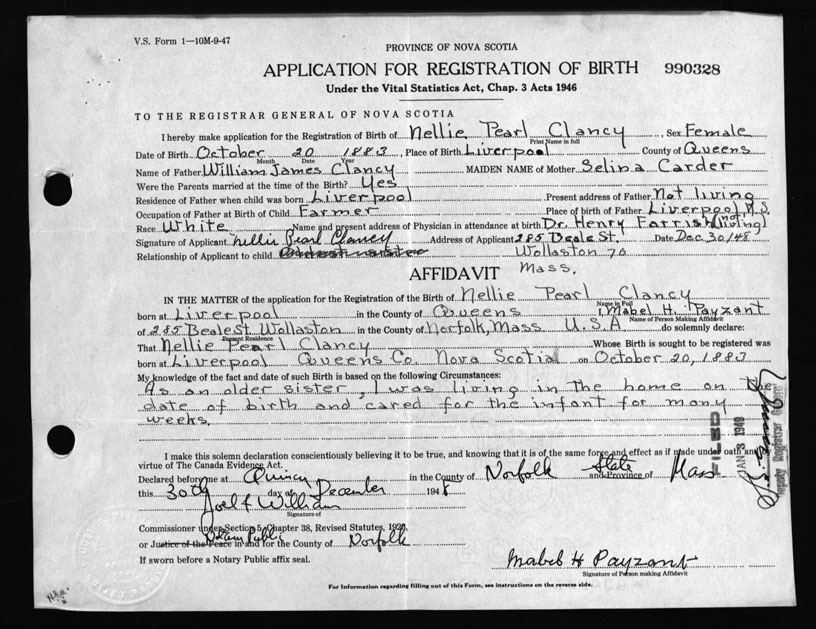 V.S. Form 1—10M-9-47
PROVINCE OF NOVA SCOTIA
APPLICATION FOR REGISTRATION OF BIRTH 990328
Under the Vital Statistics Act, Chap. 3 Acts 1946
TO THE REGISTRAR GENERAL OF NOVA SCOTIA
I hereby make application for the Registration of Birth of Nellie Pearl Clancy, Sex Female
Print Name in full
Date of Birth October 20 1883, Place of Birth Liverpool County of Queens
Month Date Year
Name of Father William James Clancy MAIDEN NAME of Mother Selina Carder
Were the Parents married at the time of the Birth? Yes
Residence of Father when child was born Liverpool Present address of Father Not living
Occupation of Father at Birth of Child Farmer Place of birth of Father Liverpool, N.S.
Race White Name and present address of Physician in attendance at birth Dr. Henry Farrish (not living)
Signature of Applicant Nellie Pearl Clancy Address of Applicant 285 Beale St. Date Dec. 30/48
Relationship of Applicant to child Wollaston 70
Mass.
AFFIDAVIT
IN THE MATTER of the application for the Registration of the Birth of Nellie Pearl Clancy
Name in Full
born at Liverpool in the County of Queens I, Mabel H. Payzant
Name of Person Making Affidavit
of 285 Beale St Wollaston in the County of Norfolk, Mass U.S.A do solemnly declare:
Present Residence
That Nellie Pearl Clancy Whose Birth is sought to be registered was
born at Liverpool Queens Co. Nova Scotia on October 20, 1883
My knowledge of the fact and date of such Birth is based on the following Circumstances:
As an older sister, I was living in the home on the
date of birth and cared for the infant for many
weeks.
FILED
JAN 3 1949
Deputy Registrar General
I make this solemn declaration conscientiously believing it to be true, and knowing that it is of the same force and effect as if made under oath and
virtue of The Canada Evidence Act.
Declared before me at Quincy in the County of Norfolk State and Province of Mass
this 30th day of December 1948
Joel F William
Signature of
Commissioner under Section 5, Chapter 38, Revised Statutes, 1923,
Notary Public
or Justice of the Peace in and for the County of Norfolk
If sworn before a Notary Public affix seal.
Mabel H Payzant
Signature of Person making Affidavit
For Information regarding filling out of this Form, see instructions on the reverse side.